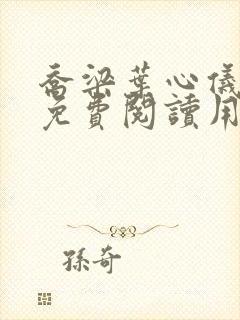 喬梁葉心儀
免費閱讀用
孫奇